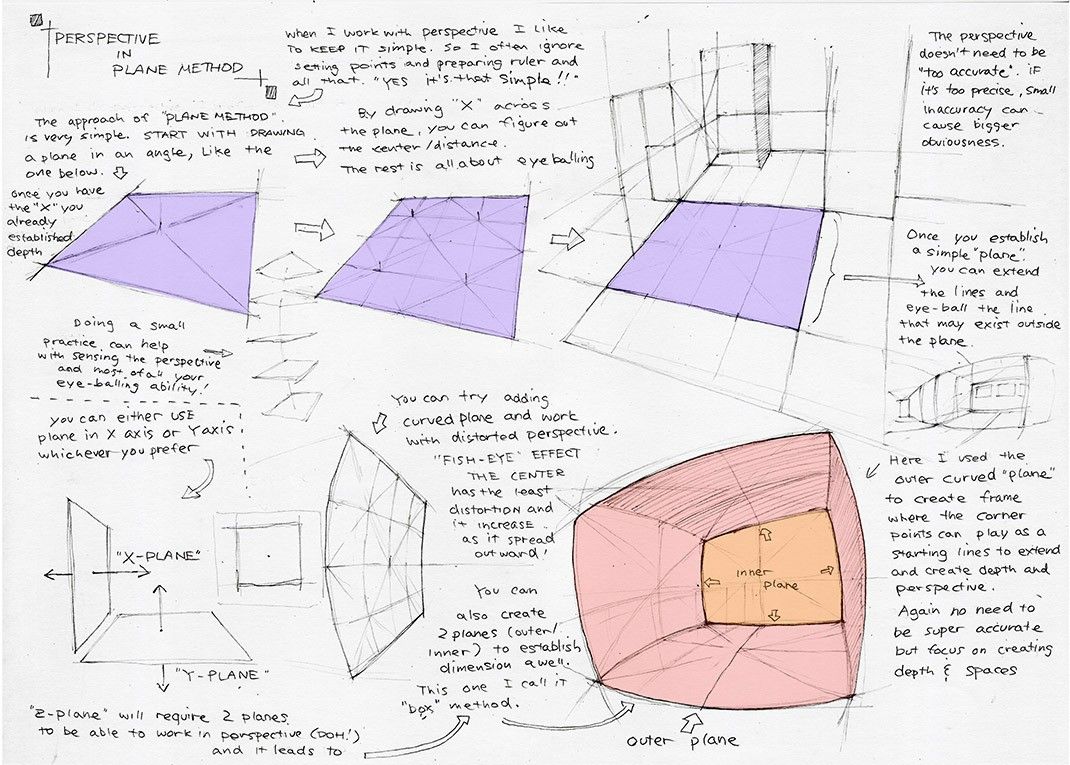 PERSPECTIVE
IN
PLANE METHOD
when I work with perspective I like
TO KEEP IT simple. So I often ignore
setting points and preparing ruler and
all that. "YES it's that simple!!"
The approach of "PLANE METHOD".
is very simple. START WITH DRAWING
a plane in an angle, Like the
one below.
By drawing "X" across
the plane, you can figure out
the center/distance.
The rest is all about eyeballing
once you have
the "X" you
already
established
depth
The perspective
doesn't need to be
"too accurate". if
it's too precise, small
inaccuracy can
cause bigger
obviousness.
Once you establish
a simple "plane".
you can extend
the lines and
eye-ball the line
that may exist outside
the plane.
Doing a small
practice can help
with sensing the perspective
and most of all your
eye-balling ability!
you can either USE
plane in X axis or Y axis
whichever you prefer
"X-PLANE"
"Y-PLANE"
"Z-plane" will require 2 planes
to be able to work in perspective (DOH!)
and it leads to
You can try adding
curved plane and work
with distorted perspective.
"FISH-EYE" EFFECT
THE CENTER
has the least
distortion and
it increase
as it spread
outward!
You can
also create
2 planes (outer/
inner) to establish
dimension awell.
This one I call it
"box" method.
inner plane
outer plane
Here I used the
outer curved "plane"
to create frame
where the corner
points can play as a
starting lines to extend
and create depth and
perspective.
Again no need to
be super accurate
but focus on creating
depth & spaces